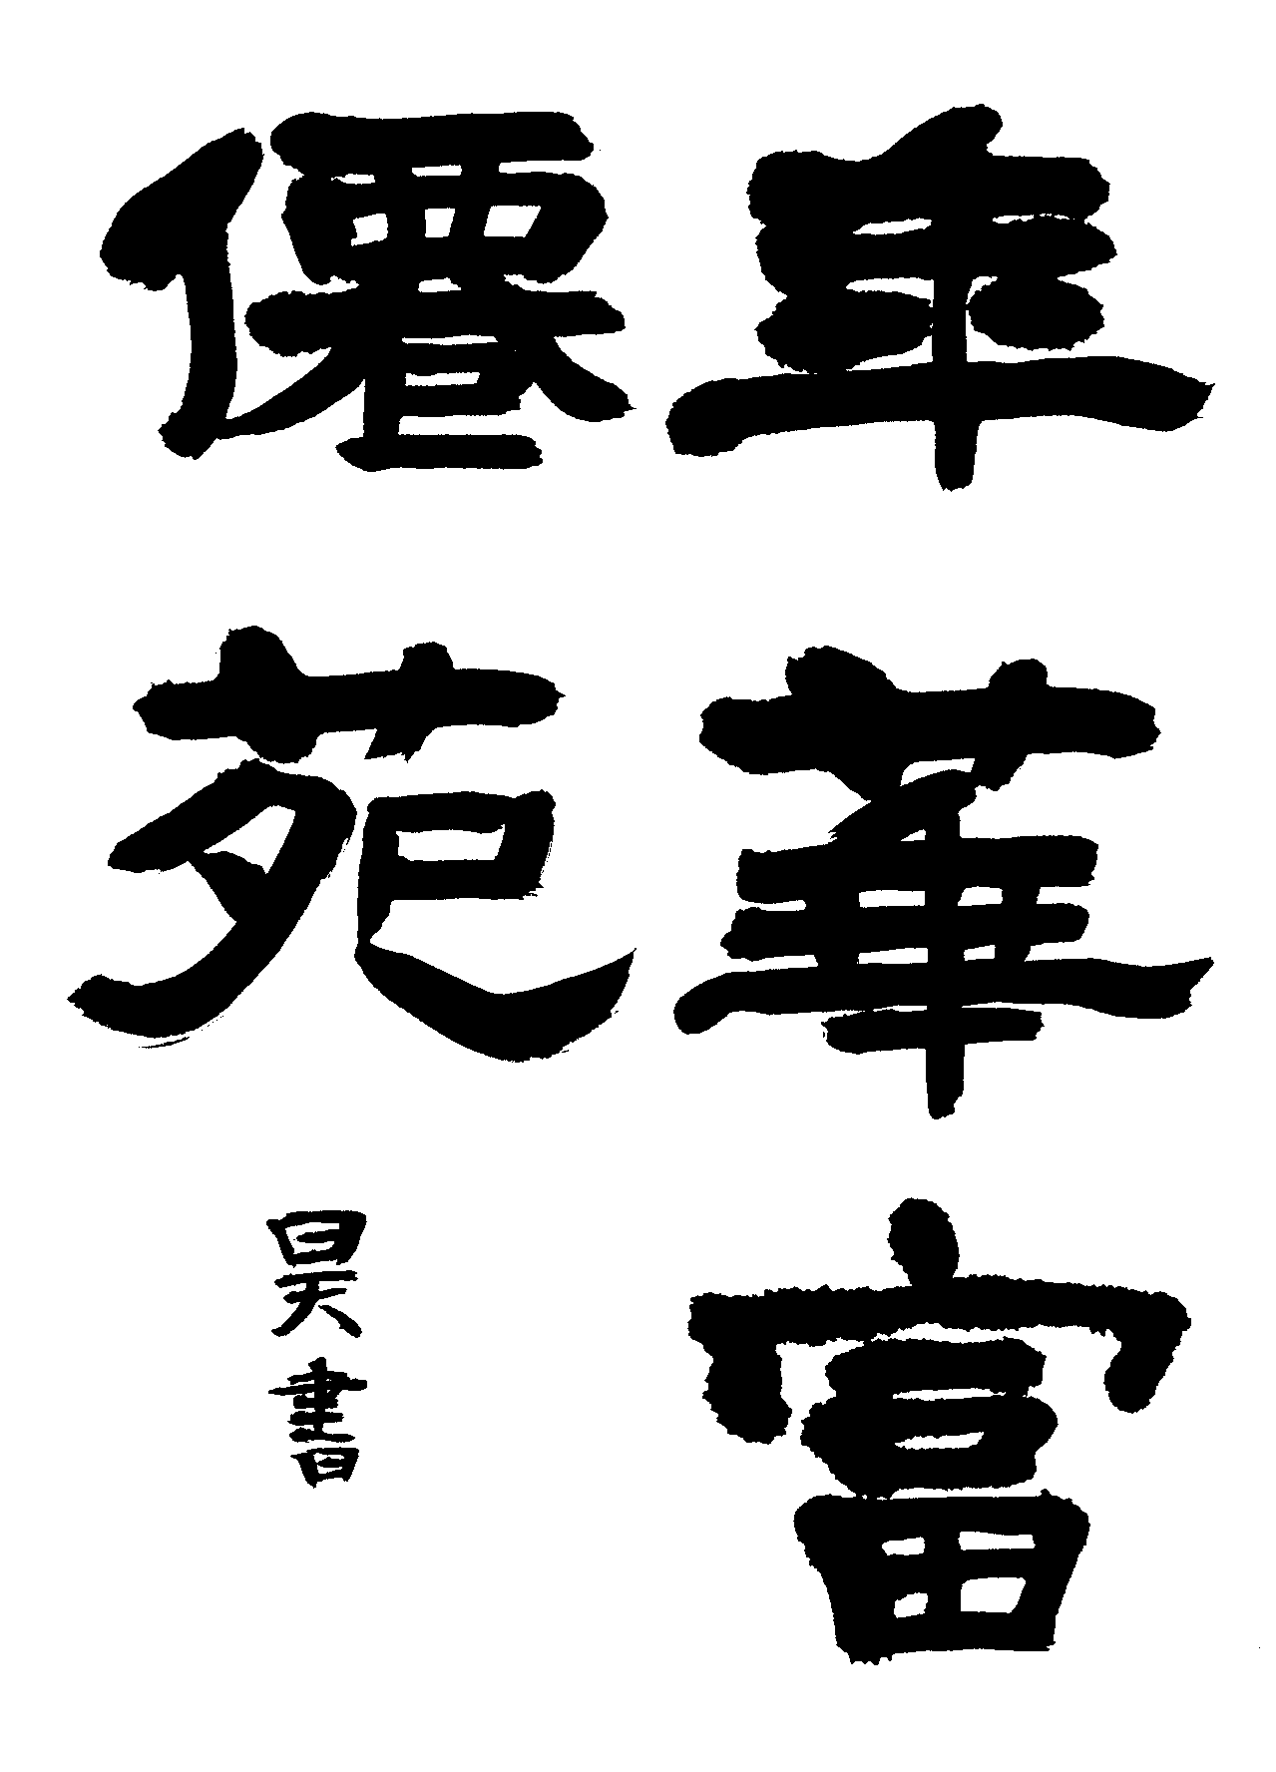 年華富
僊苑
昊書